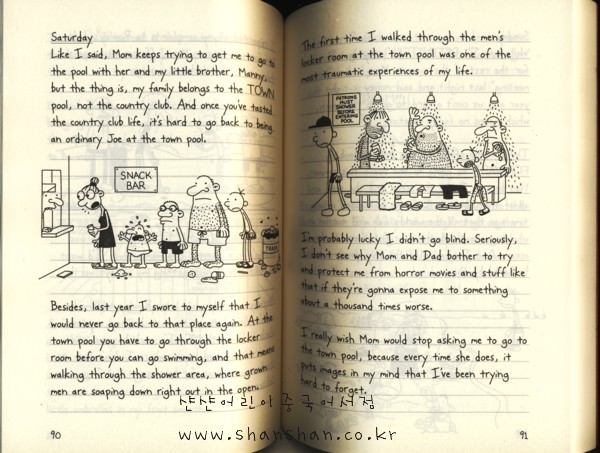 Saturday
Like I said, Mom keeps trying to get me to go to
the pool with her and my little brother, Manny,
but the thing is, my family belongs to the TOWN
pool, not the country club. And once you've tasted
the country club life, it's hard to go back to being
an ordinary Joe at the town pool.
SNACK
BAR
TRASH
Besides, last year I swore to myself that I
would never go back to that place again. At the
town pool you have to go through the locker
room before you can go swimming, and that means
walking through the shower area, where grown
men are soaping down right out in the open.
90
The first time I walked through the men's
locker room at the town pool was one of the
most traumatic experiences of my life.
PATRONS
MUST
SHOWER
BEFORE
ENTERING
POOL
I'm probably lucky I didn't go blind. Seriously,
I don't see why Mom and Dad bother to try
and protect me from horror movies and stuff like
that if they're gonna expose me to something
about a thousand times worse.
I really wish Mom would stop asking me to go to
the town pool, because every time she does, it
puts images in my mind that I've been trying
hard to forget.
91
샨샨어린이중국어서점
www.shanshan.co.kr